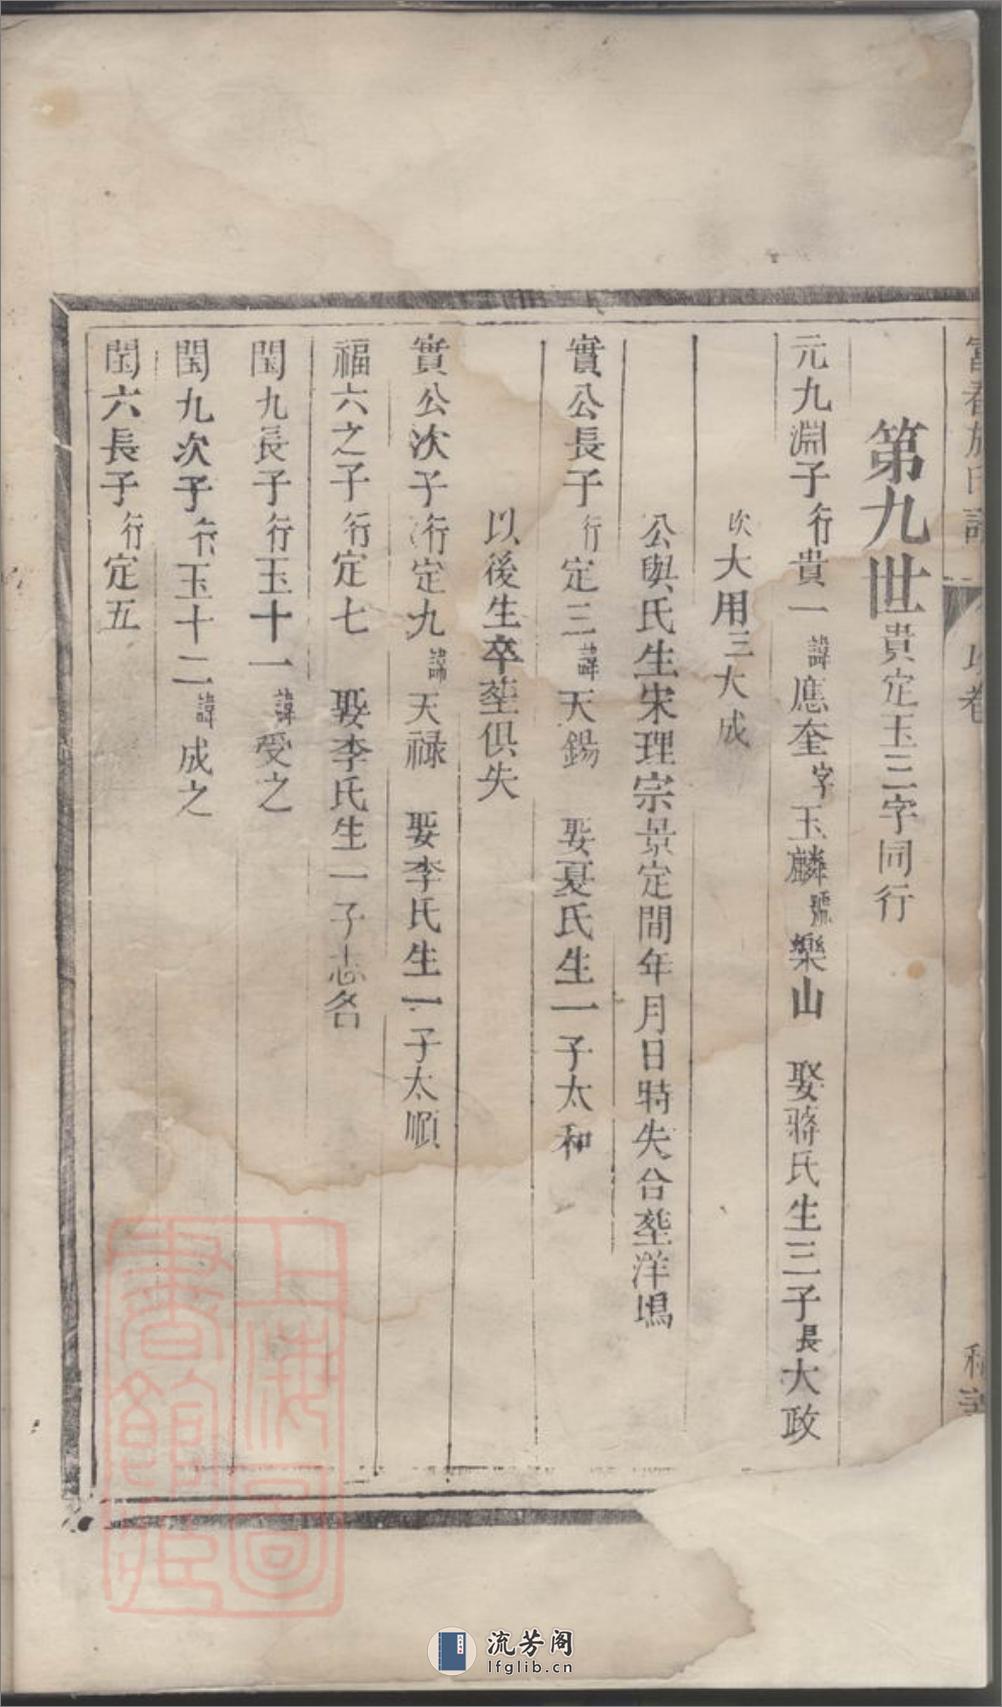 富春施氏譜
第九世貴定玉三字同行
元九淵子行貴一諱應奎字玉麟號樂山　娶蔣氏生三子長大政
次大用三大成
公與氏生宋理宗景定間年月日時失合塟洋塢
實公長子行定三諱天錫　娶夏氏生一子太和
以後生卒塟俱失
實公次子行定九諱天祿　娶李氏生一子太順
福六之子行定七　娶李氏生一子志名
閏九長子行玉十一諱受之
閏九次子行玉十二諱成之
閏六長子行定五
上海圖書館藏
流芳阁
lfglib.cn